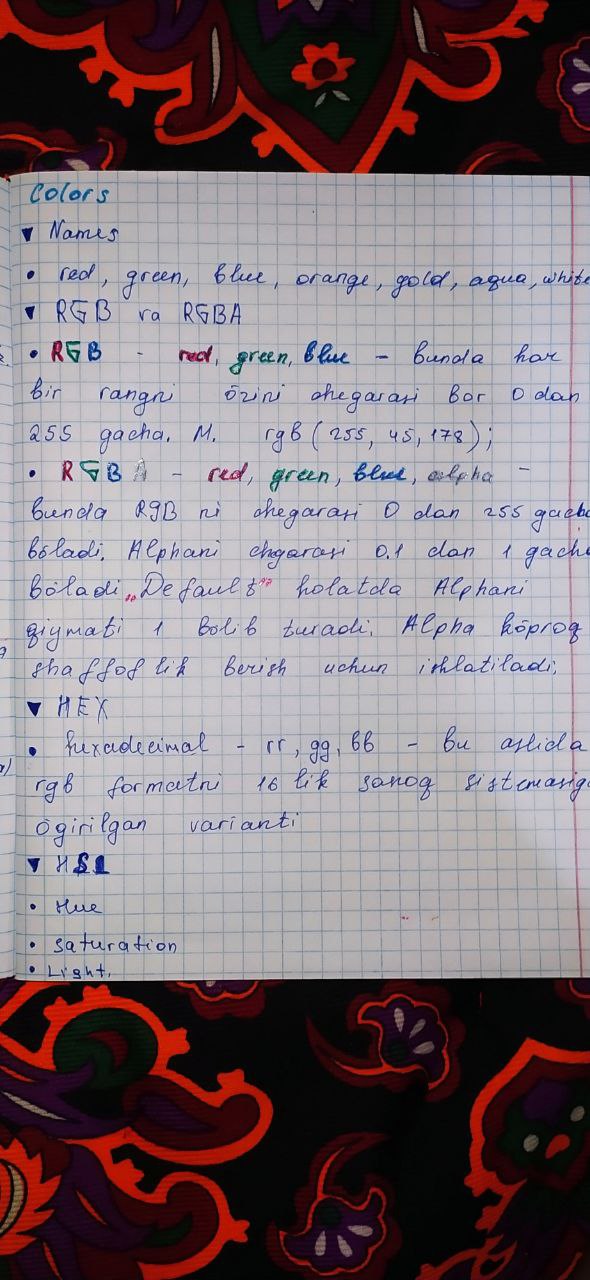 Colors
▼ Names
• red, green, blue, orange, gold, aqua, white
▼ RGB va RGBA
• RGB - red, green, blue - bunda har
bir rangni özini chegarasi bor 0 dan
255 gacha. M. rgb (255, 45, 178);
• RGBA - red, green, blue, alpha -
bunda RGB ni chegarasi 0 dan 255 gacha
böladi. Alphani chgarasi 0.1 dan 1 gacha
böladi „Default" holatda Alphani
qiymati 1 bolib turadi. Alpha köproq
shaffoflik berish uchun ishlatiladi.
▼ HEX
• hexadecimal - rr, gg, bb - bu aslida
rgb formatni 16 lik sanoq sistemasiga
ögirilgan varianti
▼ HSL
• Hue
• saturation
• Light.